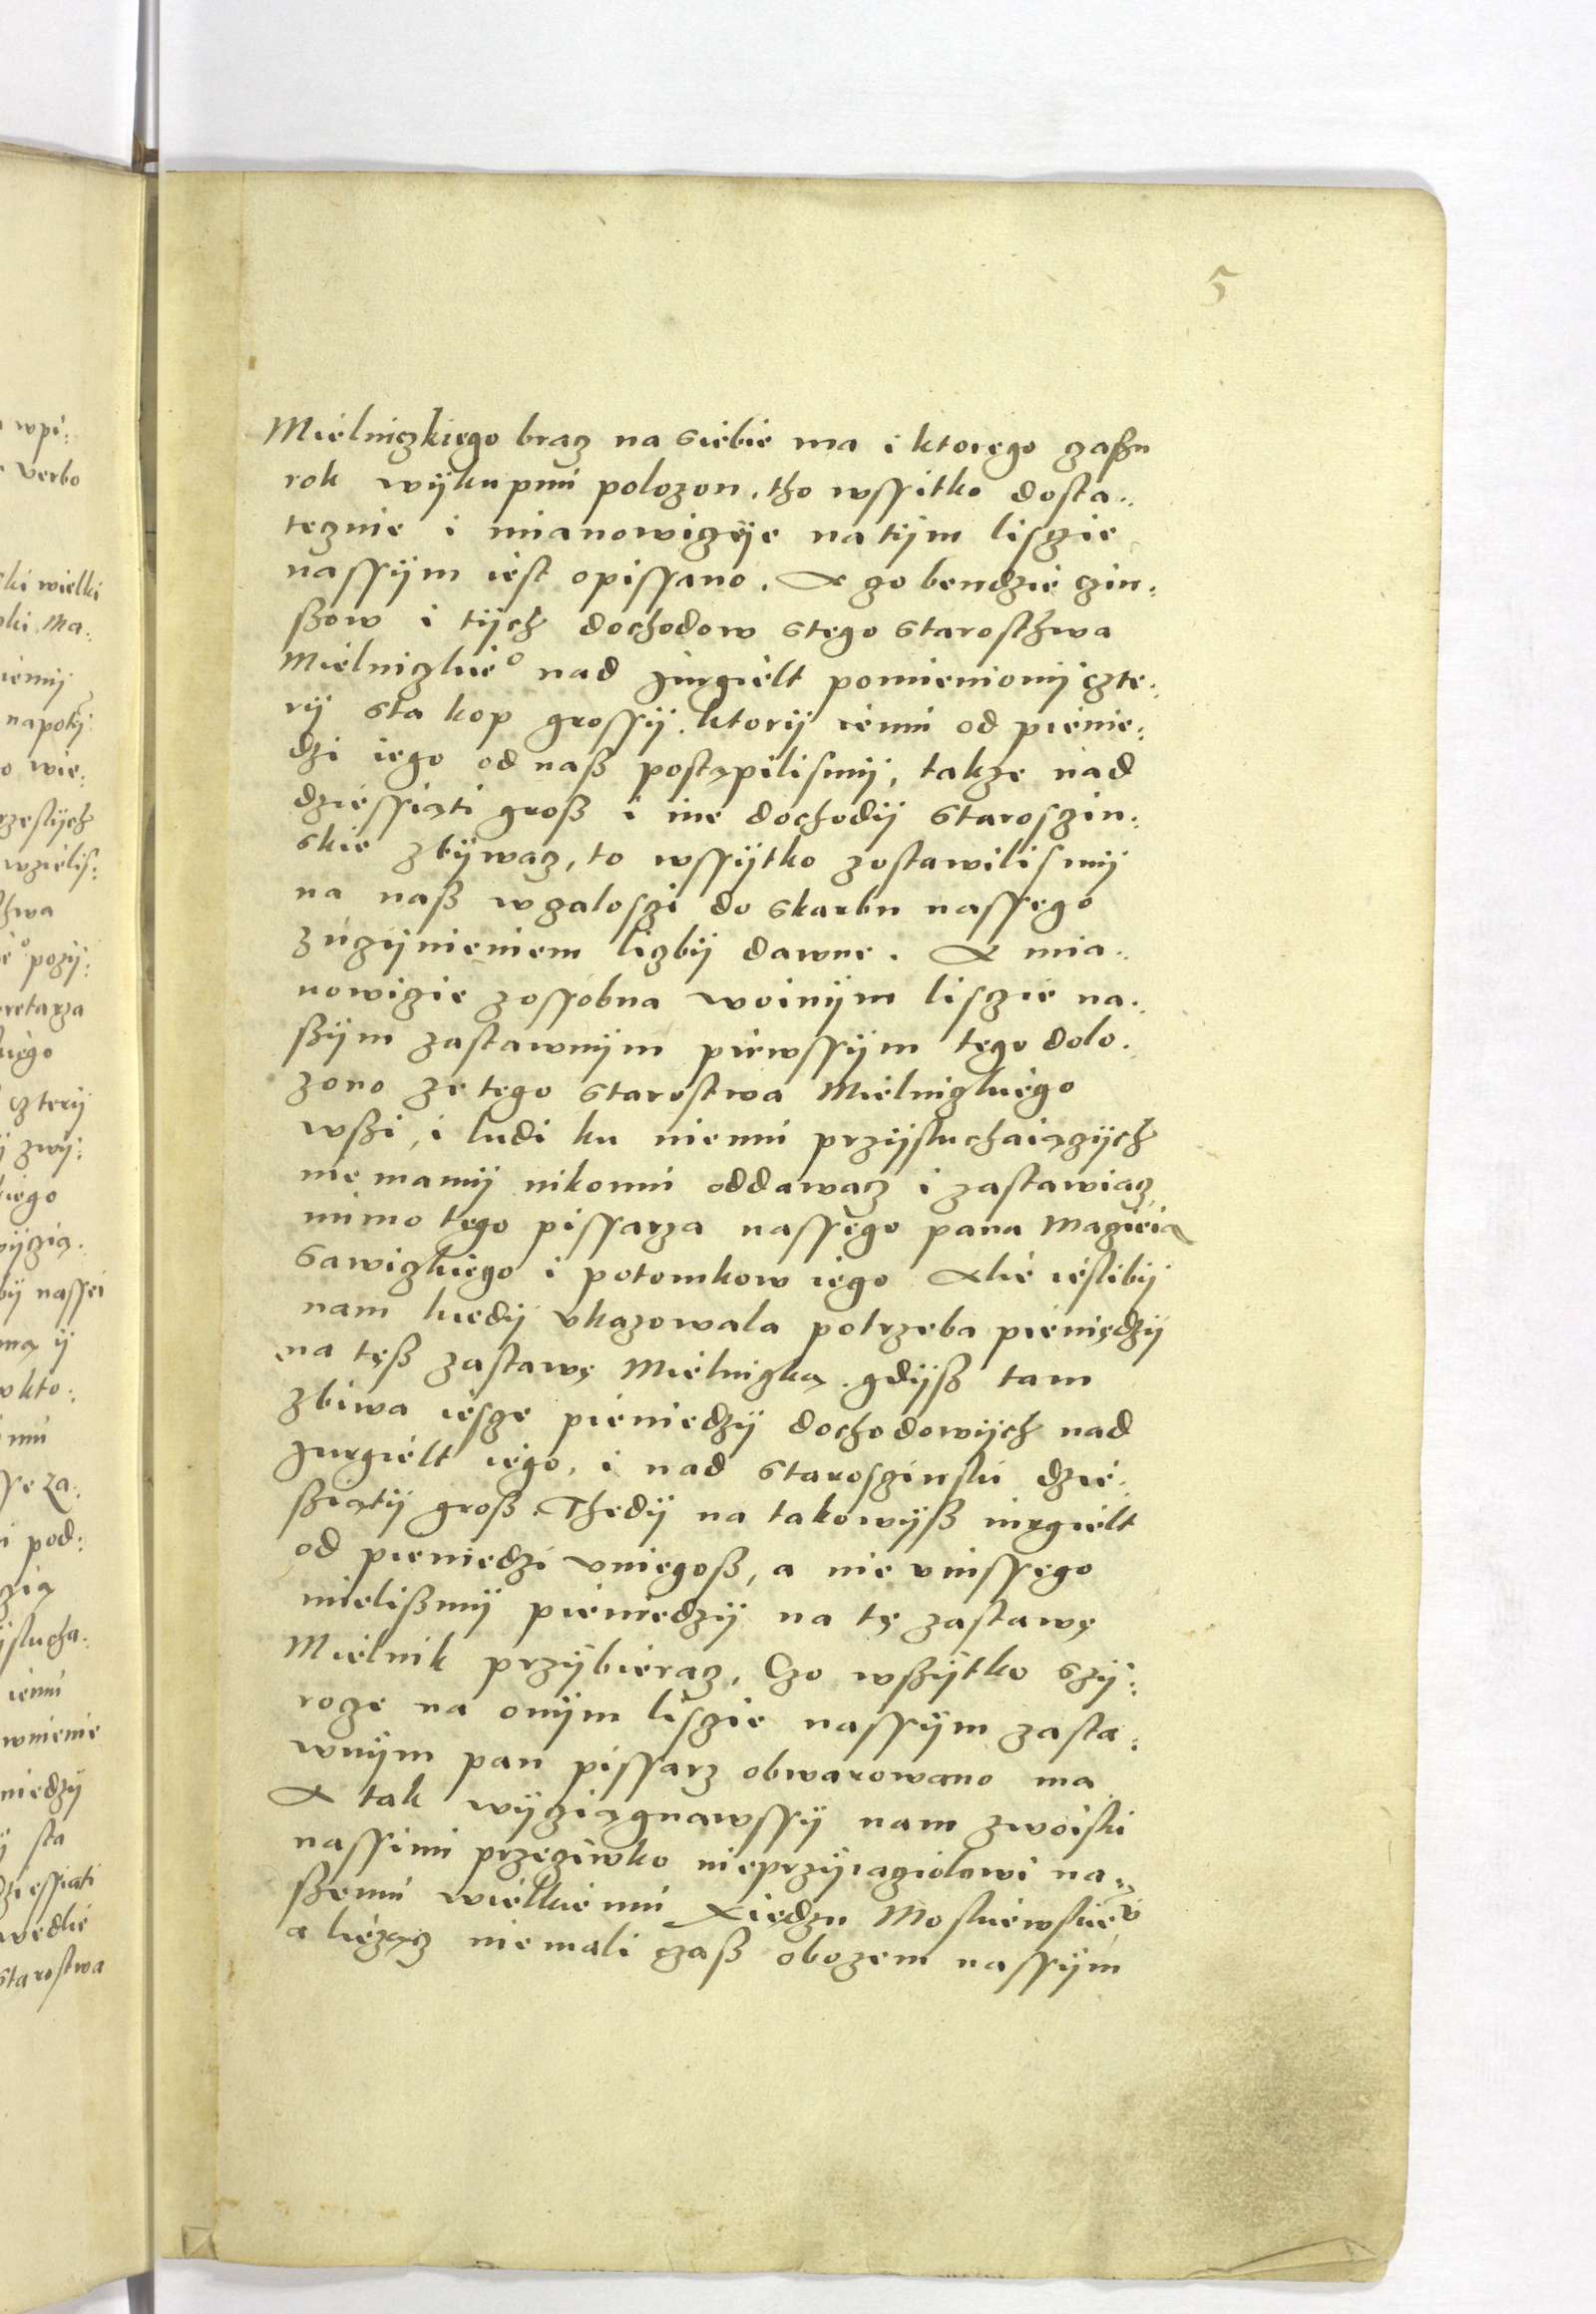 5
Mielniczkiego bracz na siebie ma i ktorego czaßu
rok wykupnii polozon. tho wssitko dosta:
tecznie i mianowiczye na tÿm liscie
nassÿm iest opissano. A czo bendzie czin:
ßow i tÿch dochodow stego starosthwa
Mielniczkie° nad Jurgielt pomienionÿ czte:
rÿ sta kop grossÿ. ktorÿ iemu od pienie:
dzi iego od naß postąpilismÿ, takze nad
dziessiąti groß i ine dochodÿ staroscin:
skie zbÿwacz, to wssÿtko zostawilismÿ
na naß wczalosci do skarbu nassego
zuczÿnieniem liczbÿ dawne. A mia:
nowicie zossobna woinÿm liscie na:
ßÿm zastawnÿm pierwssÿm tego dolo:
zono ze tego starostwa Mielnizkiego
wßi, i ludi ku niemu przÿsluchaiączÿch
nie mamÿ nikomu oddawacz i zastawiacz
mimo tego pissarza nassego pana Macieia
Sawizkiego i potomkow iego Alie iestlibÿ
nam kiedÿ vkazowala potrzeba pieniędzÿ
na tęß zastawę Mielnizką. gdÿß tam
zbiwa iescze pieniedzÿ dochodowÿch nad
Jurgielt iego, i nad staroscinski dzie:
ßiątÿ groß. Thedÿ na takowÿß iurgielt
od pieniedzi vniegoß, a nie vinssego
mielißmÿ pieniedzÿ na tę zastawę
Mielnik przÿbieracz, Czo wßÿtko szÿ:
roze na onÿm liscie nassÿm zasta:
wnÿm pan pissarz obwarowano ma
A tak wÿciągnawssÿ nam zwoiski
nassimi przeciwko nieprzÿiacziolowi na:
ßemu wielkiemu Xiędzu Moskiewskieᵛ
a liezącz niemali czaß obozem nassÿm